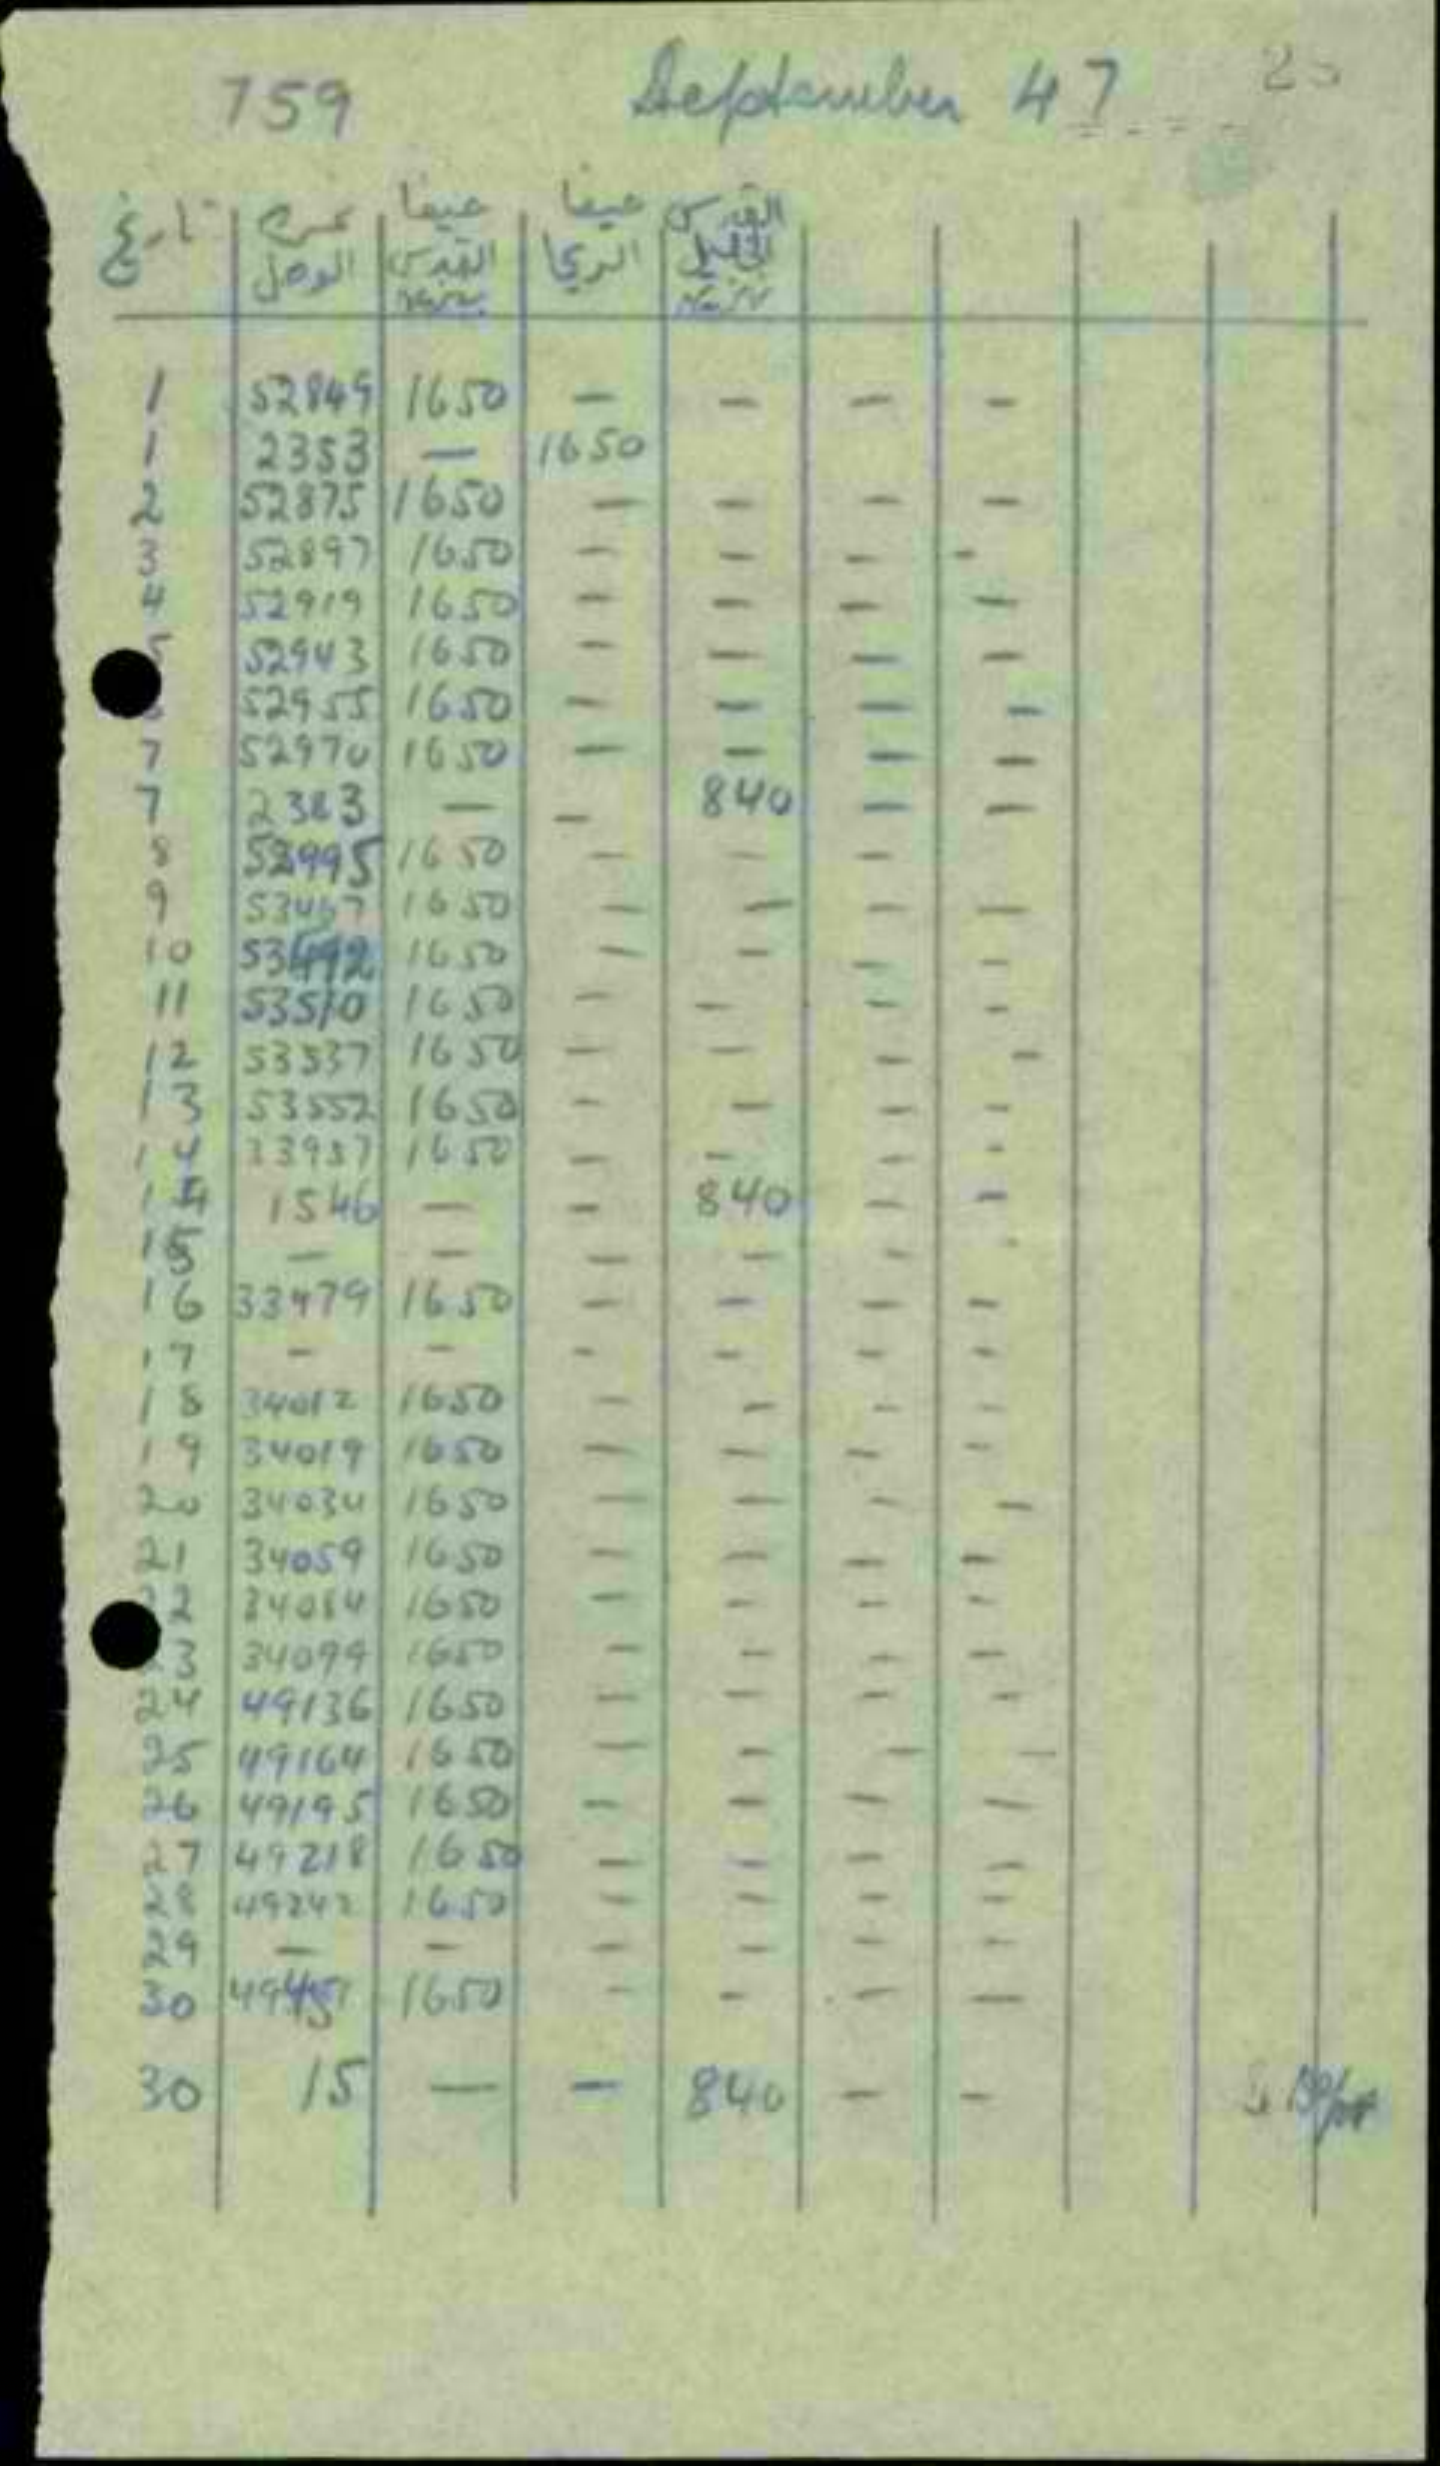 759 September 47
تاريخ نمرة الوصل حيفا القدس حيفا اريحا القدس الخليل
1 52849 1650 — — — —
1 2353 — 1650
2 52875 1650 — — — —
3 52897 1650 — — — —
4 52919 1650 — — — —
5 52943 1650 — — — —
6 52955 1650 — — — —
7 52970 1650 — — — —
7 2383 — — 840 — —
8 52995 1650 — — —
9 53467 1650 — — — —
10 53492 1650 — — — —
11 53510 1650 — — — —
12 53537 1650 — — — —
13 53552 1650 — — — —
14 33957 1650 — — — —
14 1546 — — 840 — —
15 — — — — — -
16 33979 1650 — — — —
17 — — — — — —
18 34012 1650 — — — —
19 34019 1650 — — — —
20 34034 1650 — — — —
21 34059 1650 — — — —
22 34084 1650 — — — —
23 34099 1650 — — — —
24 49136 1650 — — — —
25 49164 1650 — — — —
26 49195 1650 — — — —
27 49218 1650 — — — —
28 49242 1650 — — — —
29 — — — — — —
30 1650 — — — —
30 15 — — 840 — —